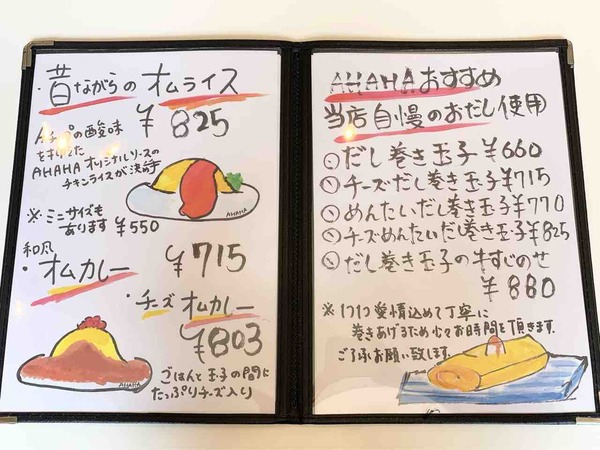 ・昔ながらのオムライス
¥825
の酸味
AHAHAオリジナルソースの
チキンライスが決手
※ミニサイズも
あります ¥550
AHAHA
和風
・オムカレー ¥715
・チーズオムカレー
¥803
ごはんと玉子の間に
たっぷりチーズ入り
AHAHA
AHAHAおすすめ
当店自慢のおだし使用
だし巻き玉子¥660
チーズだし巻き玉子¥715
めんたいだし巻き玉子¥770
チーズめんたいだし巻き玉子¥825
だし巻き玉子の牛すじのせ
¥880
※1つ1つ愛情込めて丁寧に
巻きあげるため少々お時間を頂きます。
ご了承お願い致します。
AHAHA